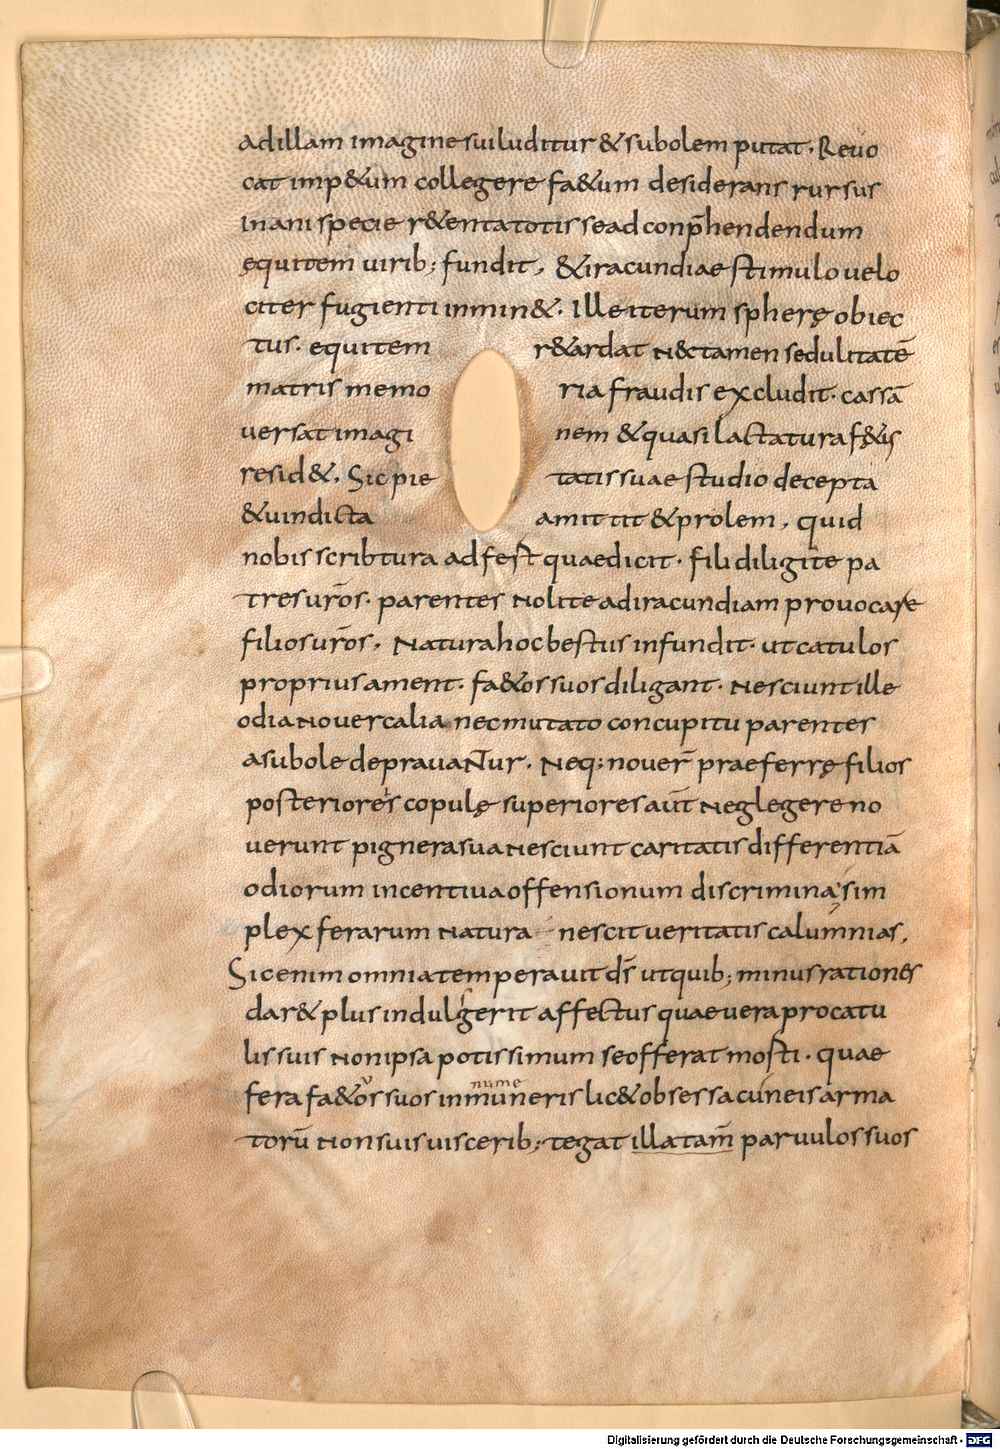 adillam imagine suiluditur & subolem putat. Reuo
cat imp&um collegere fa&um desiderans rursus
Inani specie r&enta totis sead conp̄hendendum
ęquitem uirib; fundit, & iracundiae stimulo uelo
citer fugienti inmin&. Ille iterum spherę obiec
tus. equitem r&ardat N&ctamen sedulitatē
matris memo ria fraudis excludit. cassā
uersat imagi nem & quasi lactatura f&ęis
resid&. Sic pie tatis suae studio decepta
& uindicta amittit & prolem, quid
nobis scribtura adfest quaedicit. fili diligite pa
tres ur̄os. parentes Nolite adiracundiam prouocare
filios ur̄os, Natura hoc bestiis infundit. ut catulos
proprius ament. fa&os suos diligant. Nesciunt ille
odia Nouercalia nec mutato concupitu parentes
asubole deprauaNT̄ur. Neq; nouer̄ praeferrę filios
posteriores copulę superiores aūt Neglegere no
uerunt pignera sua Nesciunt caritatis differentiā
odiorum incentiua offensionum discrimina, sim
plex ferarum Natura nescit ueritatis calumnias,
Sic enim omnia temperauit ds̄ utquib; minus rationes
dar& plus indulgerit affectus quae uera procatu
lis suis Non ipsa potissimum se offerat mosti. quae
nume
fera fa&os suos inmuneris lic& obsessa cuneis arma
torū Non suis uiscerib; tegat illatam̄ paruulos suos
Digitalisierung gefördert durch die Deutsche Forschungsgemeinschaft - DFG